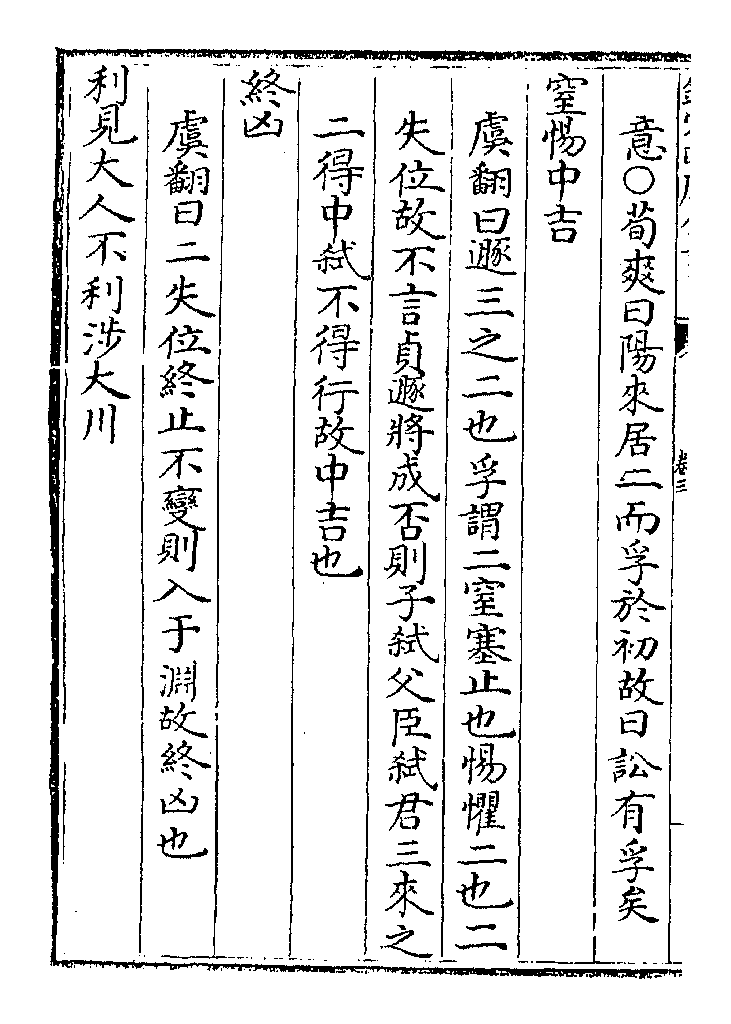 意○荀爽曰陽來居二而孚於初故曰訟有孚矣
窒惕中吉
虞翻曰遯三之二也孚謂二窒塞止也惕懼二也二
失位故不言貞遯將成否則子弒父臣弒君三來之
二得中弒不得行故中吉也
終凶
虞翻曰二失位終止不變則入于淵故終凶也
利見大人不利涉大川
卷三